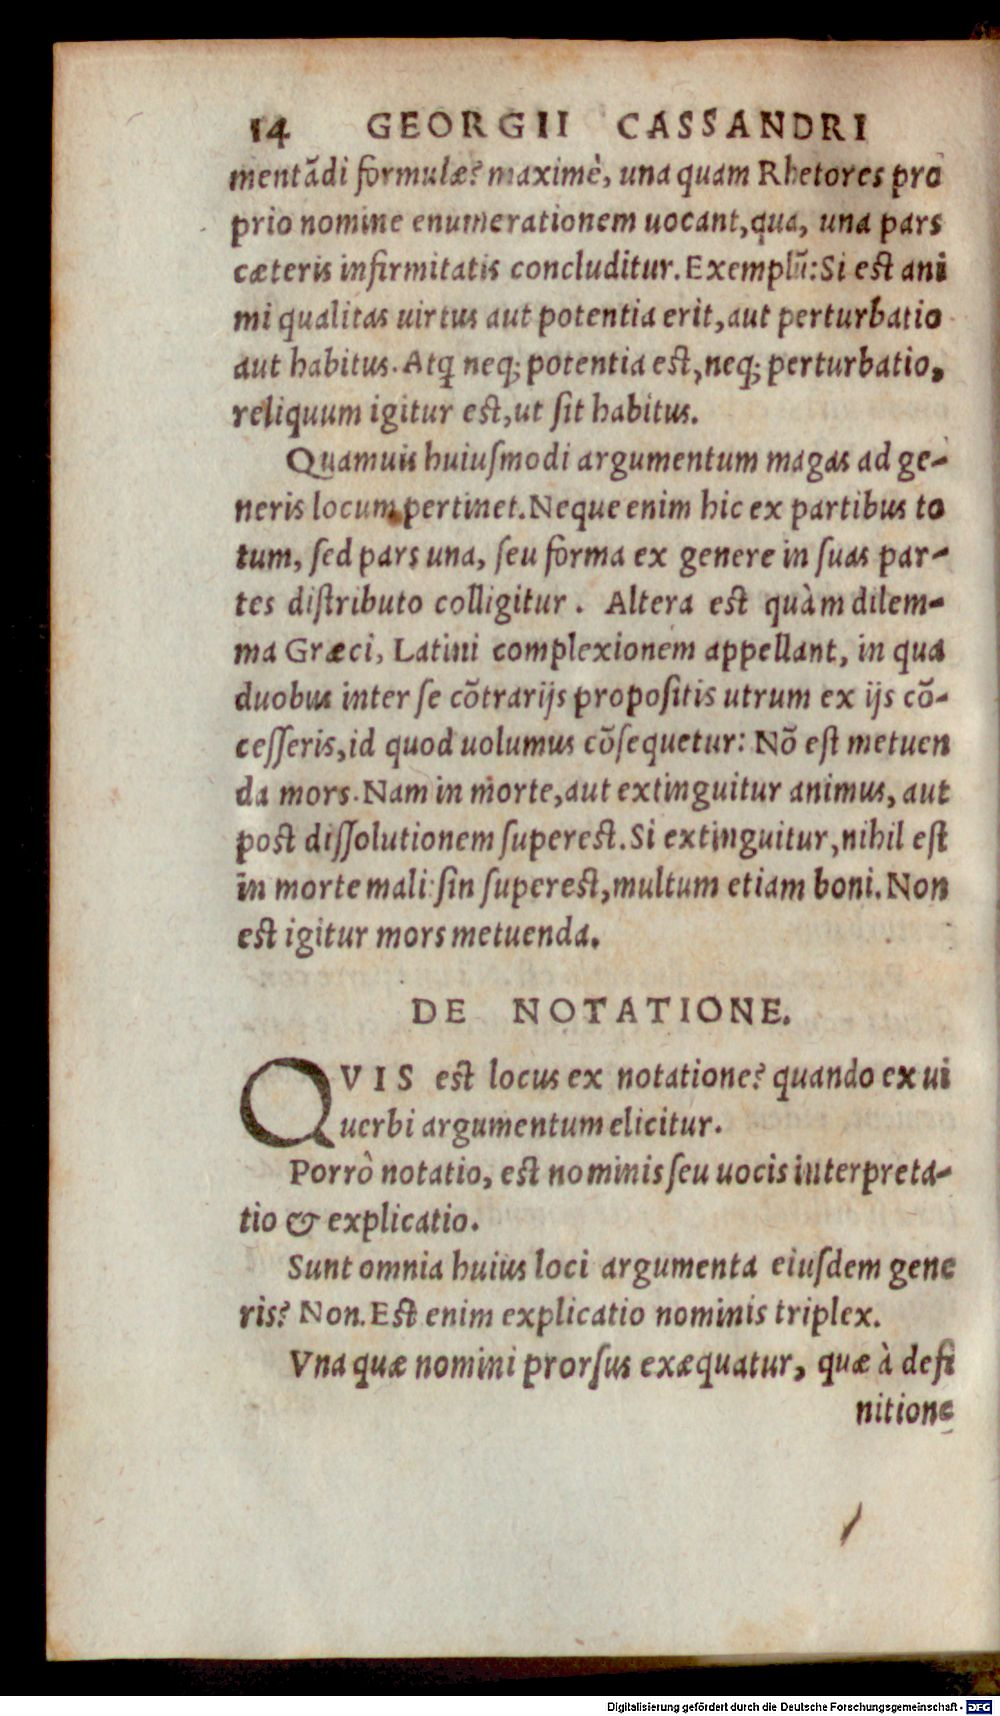 14 GEORGII CASSANDRI
mentãdi formulæ? maximè, una quam Rhetores pro
prio nomine enumerationem uocant, qua, una pars
cæteris infirmitatis concluditur. Exemplũ: Si est ani
mi qualitas uirtus aut potentia erit, aut perturbatio
aut habitus. Atq̃ neq; potentia est, neq; perturbatio,
reliquum igitur est, ut ſit habitus.
Quamuis huiuſmodi argumentum magas ad ge-
neris locum pertinet. Neque enim hic ex partibus to
tum, ſed pars una, ſeu forma ex genere in ſuas par-
tes diſtributo colligitur. Altera est quàm dilem-
ma Græci, Latini complexionem appellant, in qua
duobus inter ſe cõtrarijs propoſitis utrum ex ijs cõ-
ceſſeris, id quod uolumus cõſequetur: Nõ eſt metuen
da mors. Nam in morte, aut extinguitur animus, aut
post diſſolutionem ſuperest. Si extinguitur, nihil eſt
in morte mali: ſin ſuperest, multum etiam boni. Non
est igitur mors metuenda.
DE NOTATIONE.
QVIS est locus ex notatione? quando ex ui
uerbi argumentum elicitur.
Porrò notatio, est nominis ſeu uocis interpreta-
tio & explicatio.
Sunt omnia huius loci argumenta eiuſdem gene
ris? Non. Est enim explicatio nominis triplex.
Vna quæ nomini prorſus exæquatur, quæ à defi
nitione
Digitalisierung gefördert durch die Deutsche Forschungsgemeinschaft - DFG